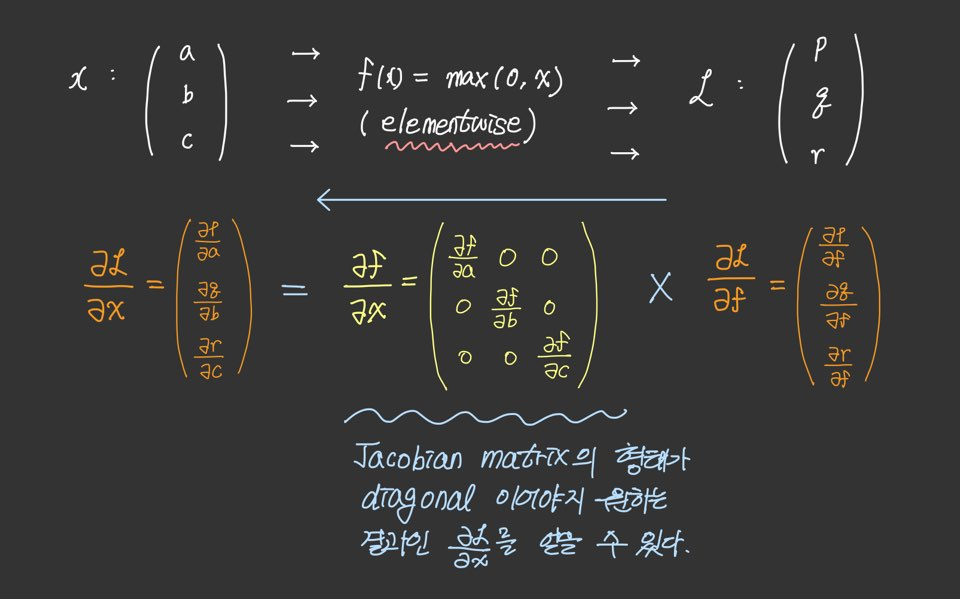 x : ( a b c ) → → → f(x) = max(0, x) (elementwise) → → → L : ( p q r )
←
∂L/∂x = ( ∂p/∂a ∂q/∂b ∂r/∂c ) = ∂f/∂x = ( ∂f/∂a 0 0 0 ∂f/∂b 0 0 0 ∂f/∂c ) × ∂L/∂f = ( ∂p/∂f ∂q/∂f ∂r/∂f )
Jacobian matrix의 형태가
diagonal 이어야지 원하는
결과인 ∂L/∂x를 얻을 수 있다.